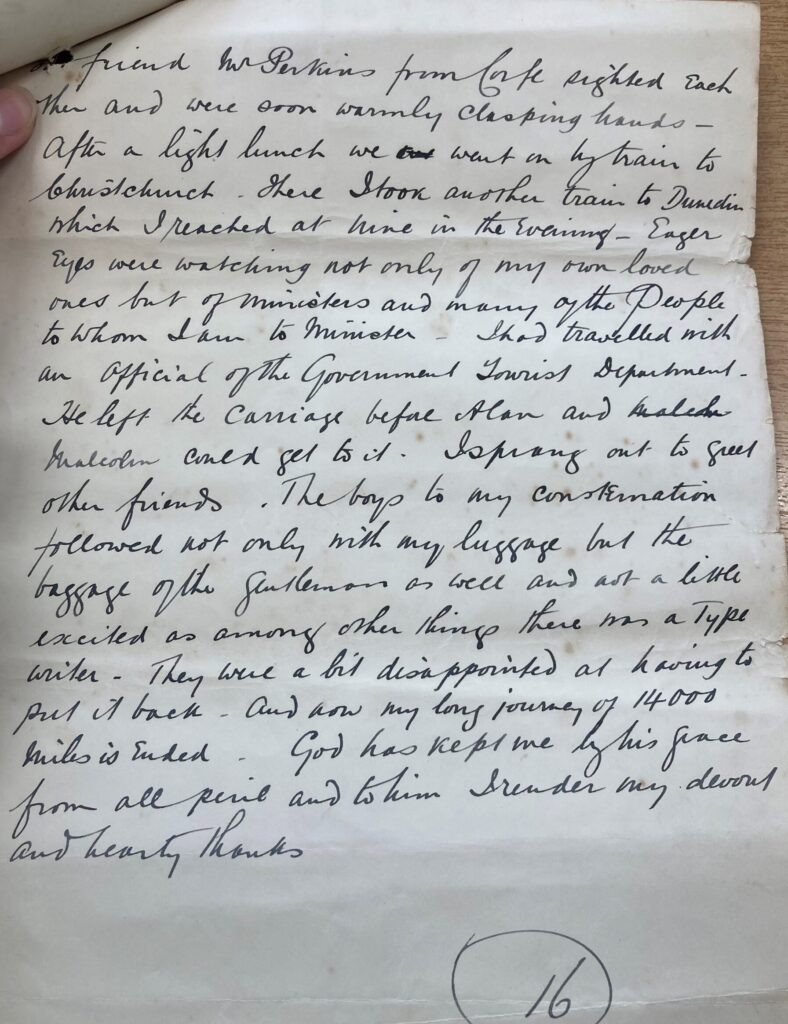 friend Mr Perkins from Corfe sighted Each
ther and were soon warmly clasping hands –
After a light lunch we went on by train to
Christchurch . There I took another train to Dunedin
which I reached at nine in the Evening – Eager
Eyes were watching not only of my own loved
ones but of ministers and many of the People
to whom I am to Minister – I had travelled with
an Official of the Government Tourist Department –
He left the Carriage before Alan and Malcolm
Malcolm could get to it . I sprang out to greet
other friends . The boys to my consternation
followed not only with my luggage but the
baggage of the Gentleman as well and not a little
excited as among other things there was a Type
writer – They were a bit disappointed at having to
put it back – And now my long journey of 14000
Miles is Ended – God has kept me by his grace
from all peril and to him I render my devout
and hearty thanks
16